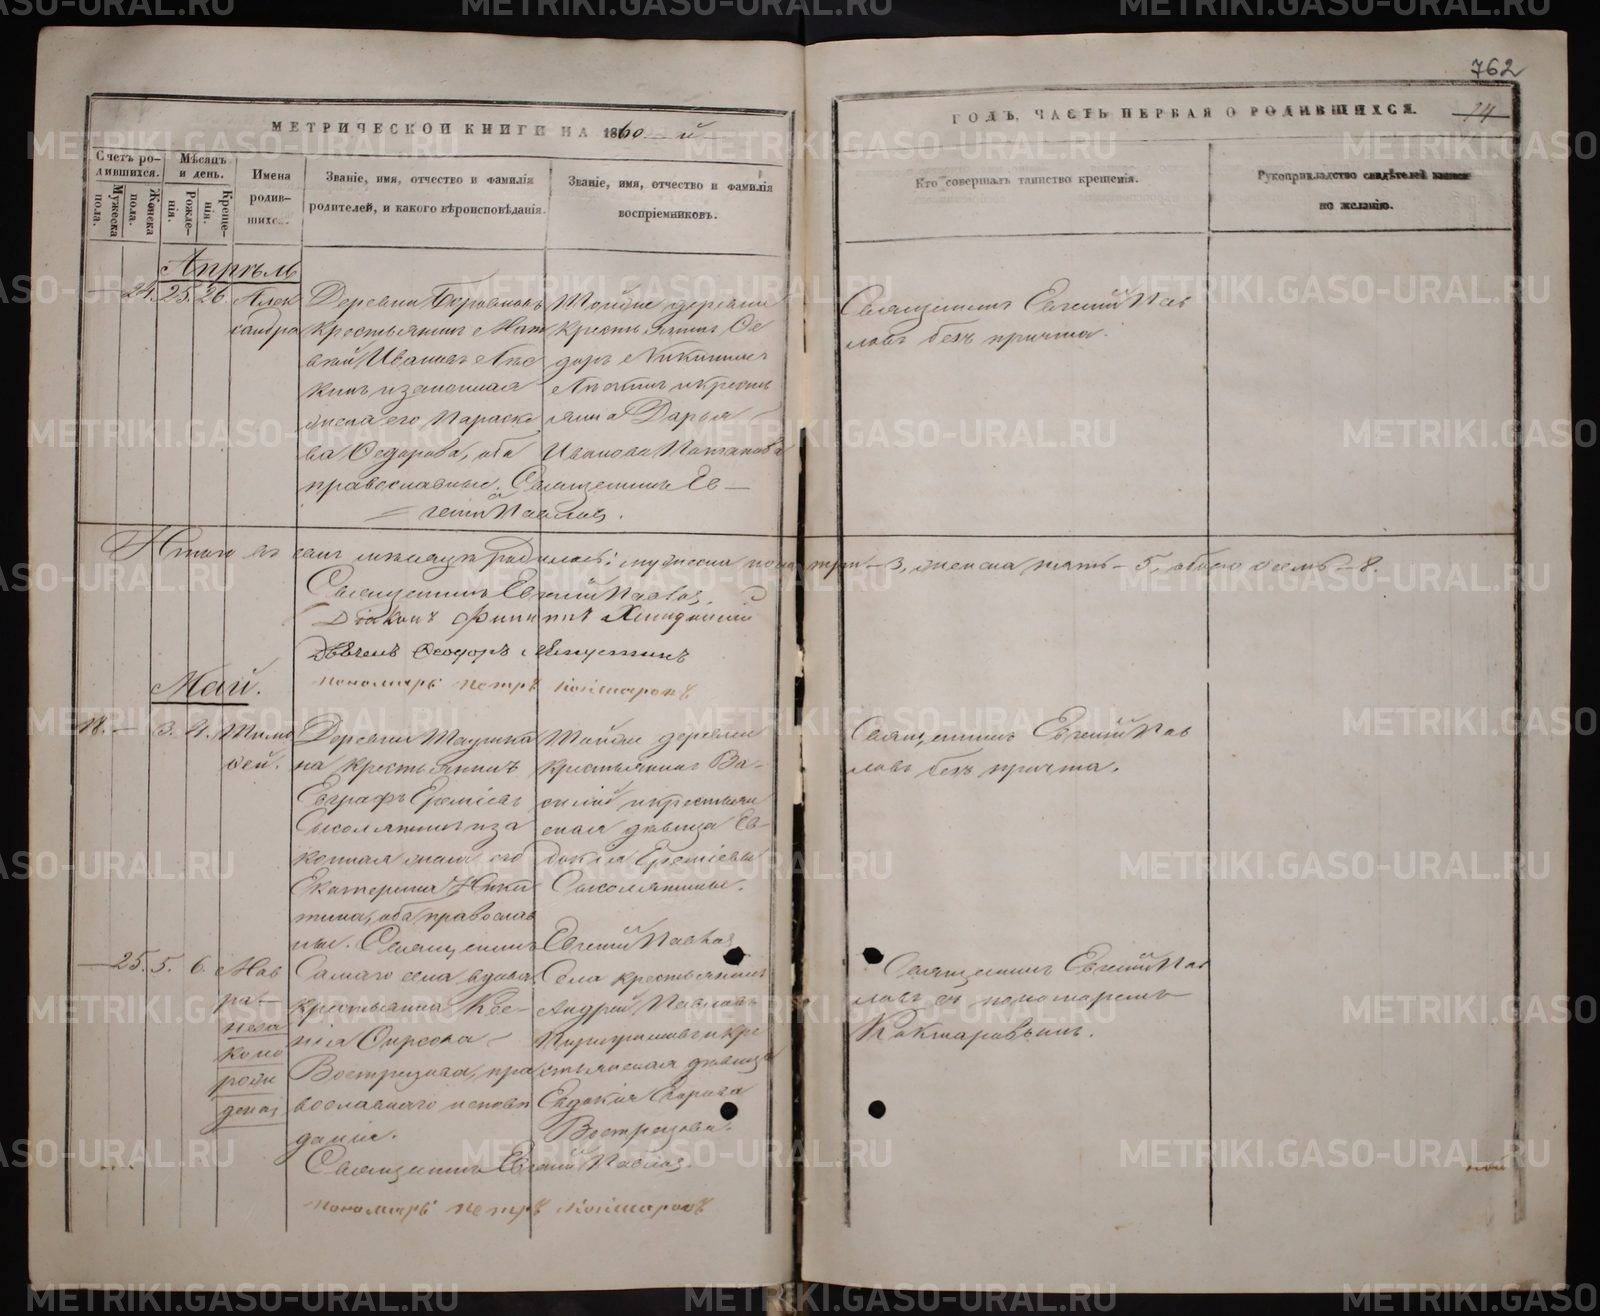 762
МЕТРИЧЕСКОЙ КНИГИ НА 1860 й
ГОДЪ, ЧАСТЬ ПЕРВАЯ О РОДИВШИХСЯ.
14
Счетъ родившихся.
Мужеска пола.
Женска пола.
Мѣсяцъ и день.
Рожденія.
Крещенія.
Имена родившихс
Званіе, имя, отчество и фамилія
родителей, и какого вѣроисповѣданія.
Званіе, имя, отчество и фамилія
воспріемниковъ.
Кто совершалъ таинство крещенія.
Рукоприкладство свидѣтелей записи
по желанію.
Апрѣль
24. 25. 26. Алек
сандра
Деревни
крестьянинъ Мат
вей Ивановъ
и законная
жена его Параске
ва Ѳедорова, оба
православные. Священникъ Ев
геній Павловъ.
Тойже деревни
крестьянинъ Ѳе
доръ Никитинъ
и кресть
янка Дарья
Иванова Потапова
Священникъ Евгеній Пав
ловъ безъ причта.
Итого въ семъ мѣсяцѣ родилось: мужеска пола три – 3, женска пять – 5, обоего восемь – 8.
Священникъ Евгеній Павловъ.
Діаконъ Филиппъ
Дьячекъ Ѳеодоръ
Пономарь Петръ Кокшаровъ
Май.
18. – 3. 4. Тимо
ѳей.
Деревни
на крестьянинъ
Евграфъ Еремѣевъ
и за
конная жена его
Екатерина Ники
тина, оба православ
ные. Священникъ Евгеній Павловъ
Тойже деревни
крестьянинъ Ва-
силій и крестьян
ская дѣвица Ев-
докія Еремѣевы
Священникъ Евгеній Пав
ловъ безъ причта.
– 25. 5. 6. Мав
ра –
неза
конно
рожд
денна
Самаго села вдова
крестьянка Ксе-
нія Фирсова
Вострецова, пра
вославнаго исповѣ
данія.
Священникъ Евгеній Павловъ.
Пономарь Петръ Кокшаровъ
Села крестьянинъ
Андрей Павловъ
и кре
стьянская дѣвица
Евдокія Егорова
Вострецова.
Священникъ Евгеній Пав
ловъ съ пономаремъ
Кокшаровымъ.
METRIKI.GASO-URAL.RU